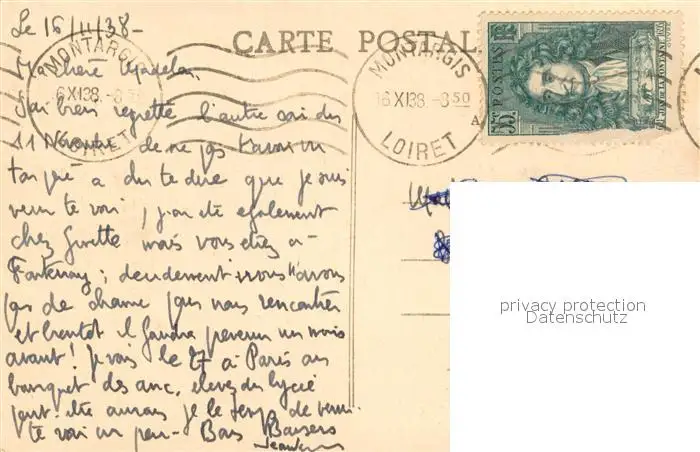 Le 16/11/38-
CARTE POSTALE
MONTARGIS
16 XI 38 - 8 50
LOIRET
MONTARGIS
16 XI 38 - 8 50
LOIRET
POSTES
55c
JEAN DE LA FONTAINE
Ma chère Madelon
J'ai bien regretté l'autre soir du
11 Novembre de ne pas t'avoir vu
a du te dire que je suis
venu te voir, j'en été également
chez Ginette mais vous étiez à
Fontenay; décidement nous n'avons
pas de chance pas nous rencontrer
et bientot il faudra prévenir un mois
avant! Je vais le 27 à Paris au
banquet des anc. élèves du lycée
peut-être aurais je le temps de venir
te voir un peu - Bons Baisers
privacy protection
Datenschutz